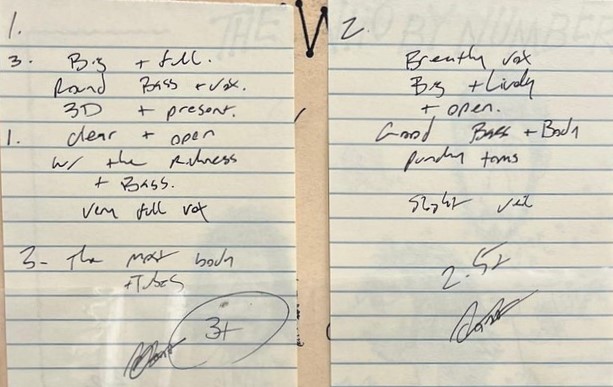 1.
3. Big + full.
Round Bass + vox.
3D + present.
1. clear + open
w/ the Richness
+ Bass.
very full vox
3- The most body
+Tubes
3+
2.
Breathy vox
Big + Lively
+ open.
Good Bass + Body
Punchy toms
Slight veil
2.5+
THE
BY NUMBER